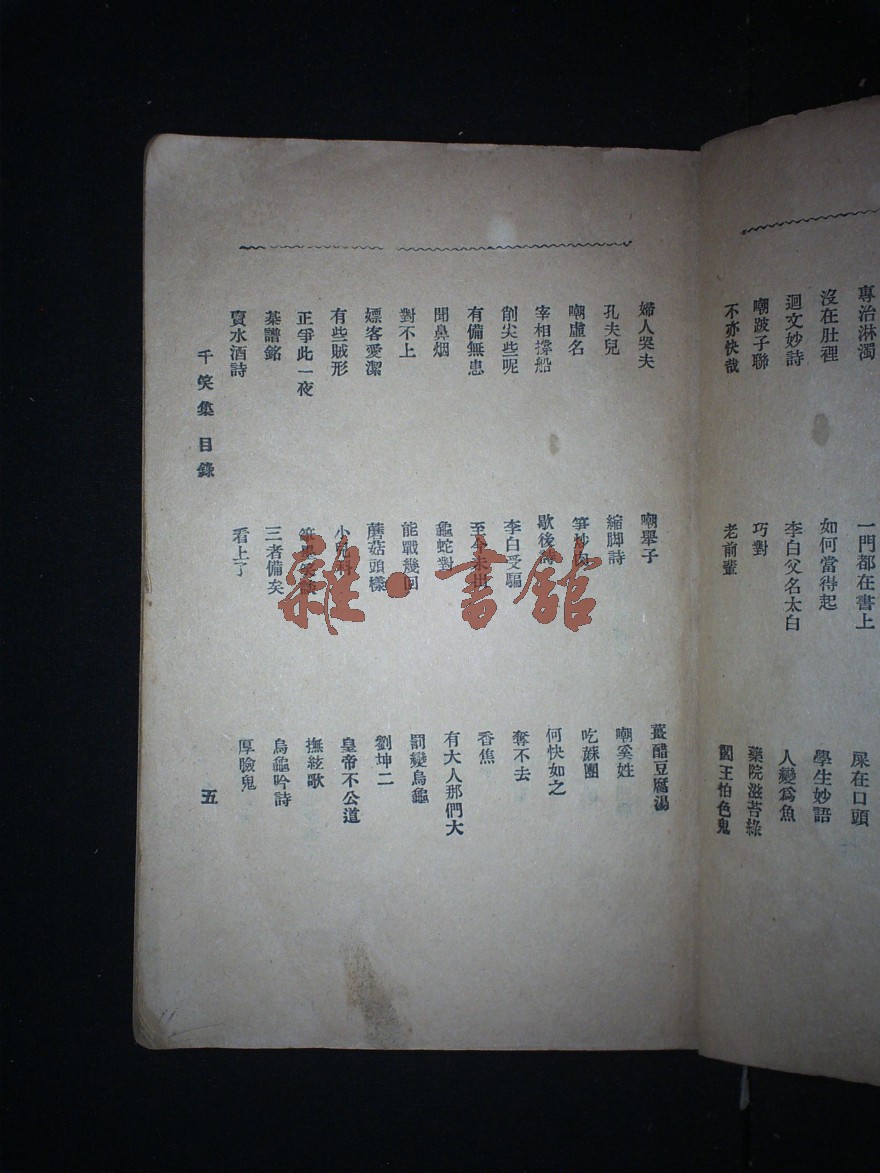 專治淋濁 一門都在書上 屎在口頭
沒在肚裡 如何當得起 學生妙語
迴文妙詩 李白父名太白 人變爲魚
嘲跛子聯 巧對 藥院滋苔綠
不亦快哉 老前輩 閻王怕色鬼
婦人哭夫 嘲舉子 薑醋豆腐湯
孔夫兒 縮脚詩 嘲奚姓
嘲虛名 笋炒肉 吃蔴團
宰相撐船 歇後詩 何快如之
削尖些呢 李白受騙 奪不去
有備無患 至今未 香焦
聞鼻烟 龜蛇對 有大人那們大
對不上 能戰幾回 罰變烏龜
嫖客愛潔 蘑菇頭樣 劉坤二
有些賊形 小兒科 皇帝不公道
正爭此一夜 撫絃歌
棊譜銘 三者備矣 烏龜吟詩
賣水酒詩 看上了 厚臉鬼
千笑集 目錄 五
雜·書館